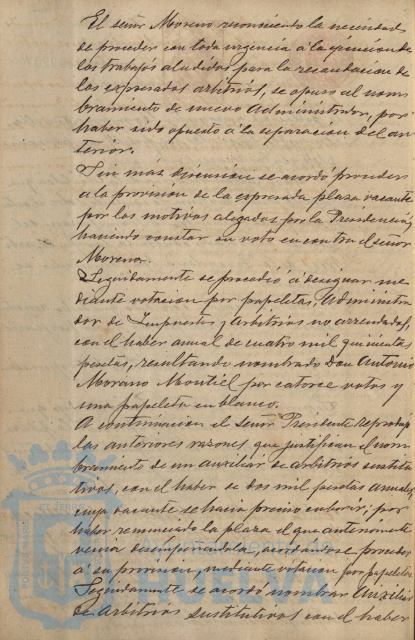 El señor Moreno reconociendo la necesidad
de proceder con toda urgencia á la ejecucion de
los trabajos aludidos para la recaudacion de
los expresados arbitrios, se opuso al nom
bramiento de nuevo Administrador, por
haber sido opuesto á la separacion del an
terior.
Sin más discusion se acordó proceder
a la provision de la expresada plaza vacante
por los motivos alegados por la Presidencia,
haciendo constar su voto en contra el señor
Moreno.
Seguidamente se procedió á designar me
diante votacion por papeletas, Administra
dor de Impuestos y Arbitrios no arrendados,
con el haber anual de cuatro mil quinientas
pesetas, resultando nombrado Don Antonio
Morano Montiel por catorce votos y
una papeleta en blanco.
A continuacion el Señor Presidente reprodujo
las anteriores razones, que justifican el nom
bramiento de un auxiliar de arbitrios sustitu
tivos, con el haber de dos mil pesetas anuales,
cuya vacante se hacia preciso cubrir, por
haber renunciado la plaza el que anteriormente
venia desempeñandola, acordandose proceder
á su provision, mediante votacion por papeletas.
Seguidamente se acordó nombrar Auxiliar
de Arbitrios sustitutivos con el haber
HUELVA